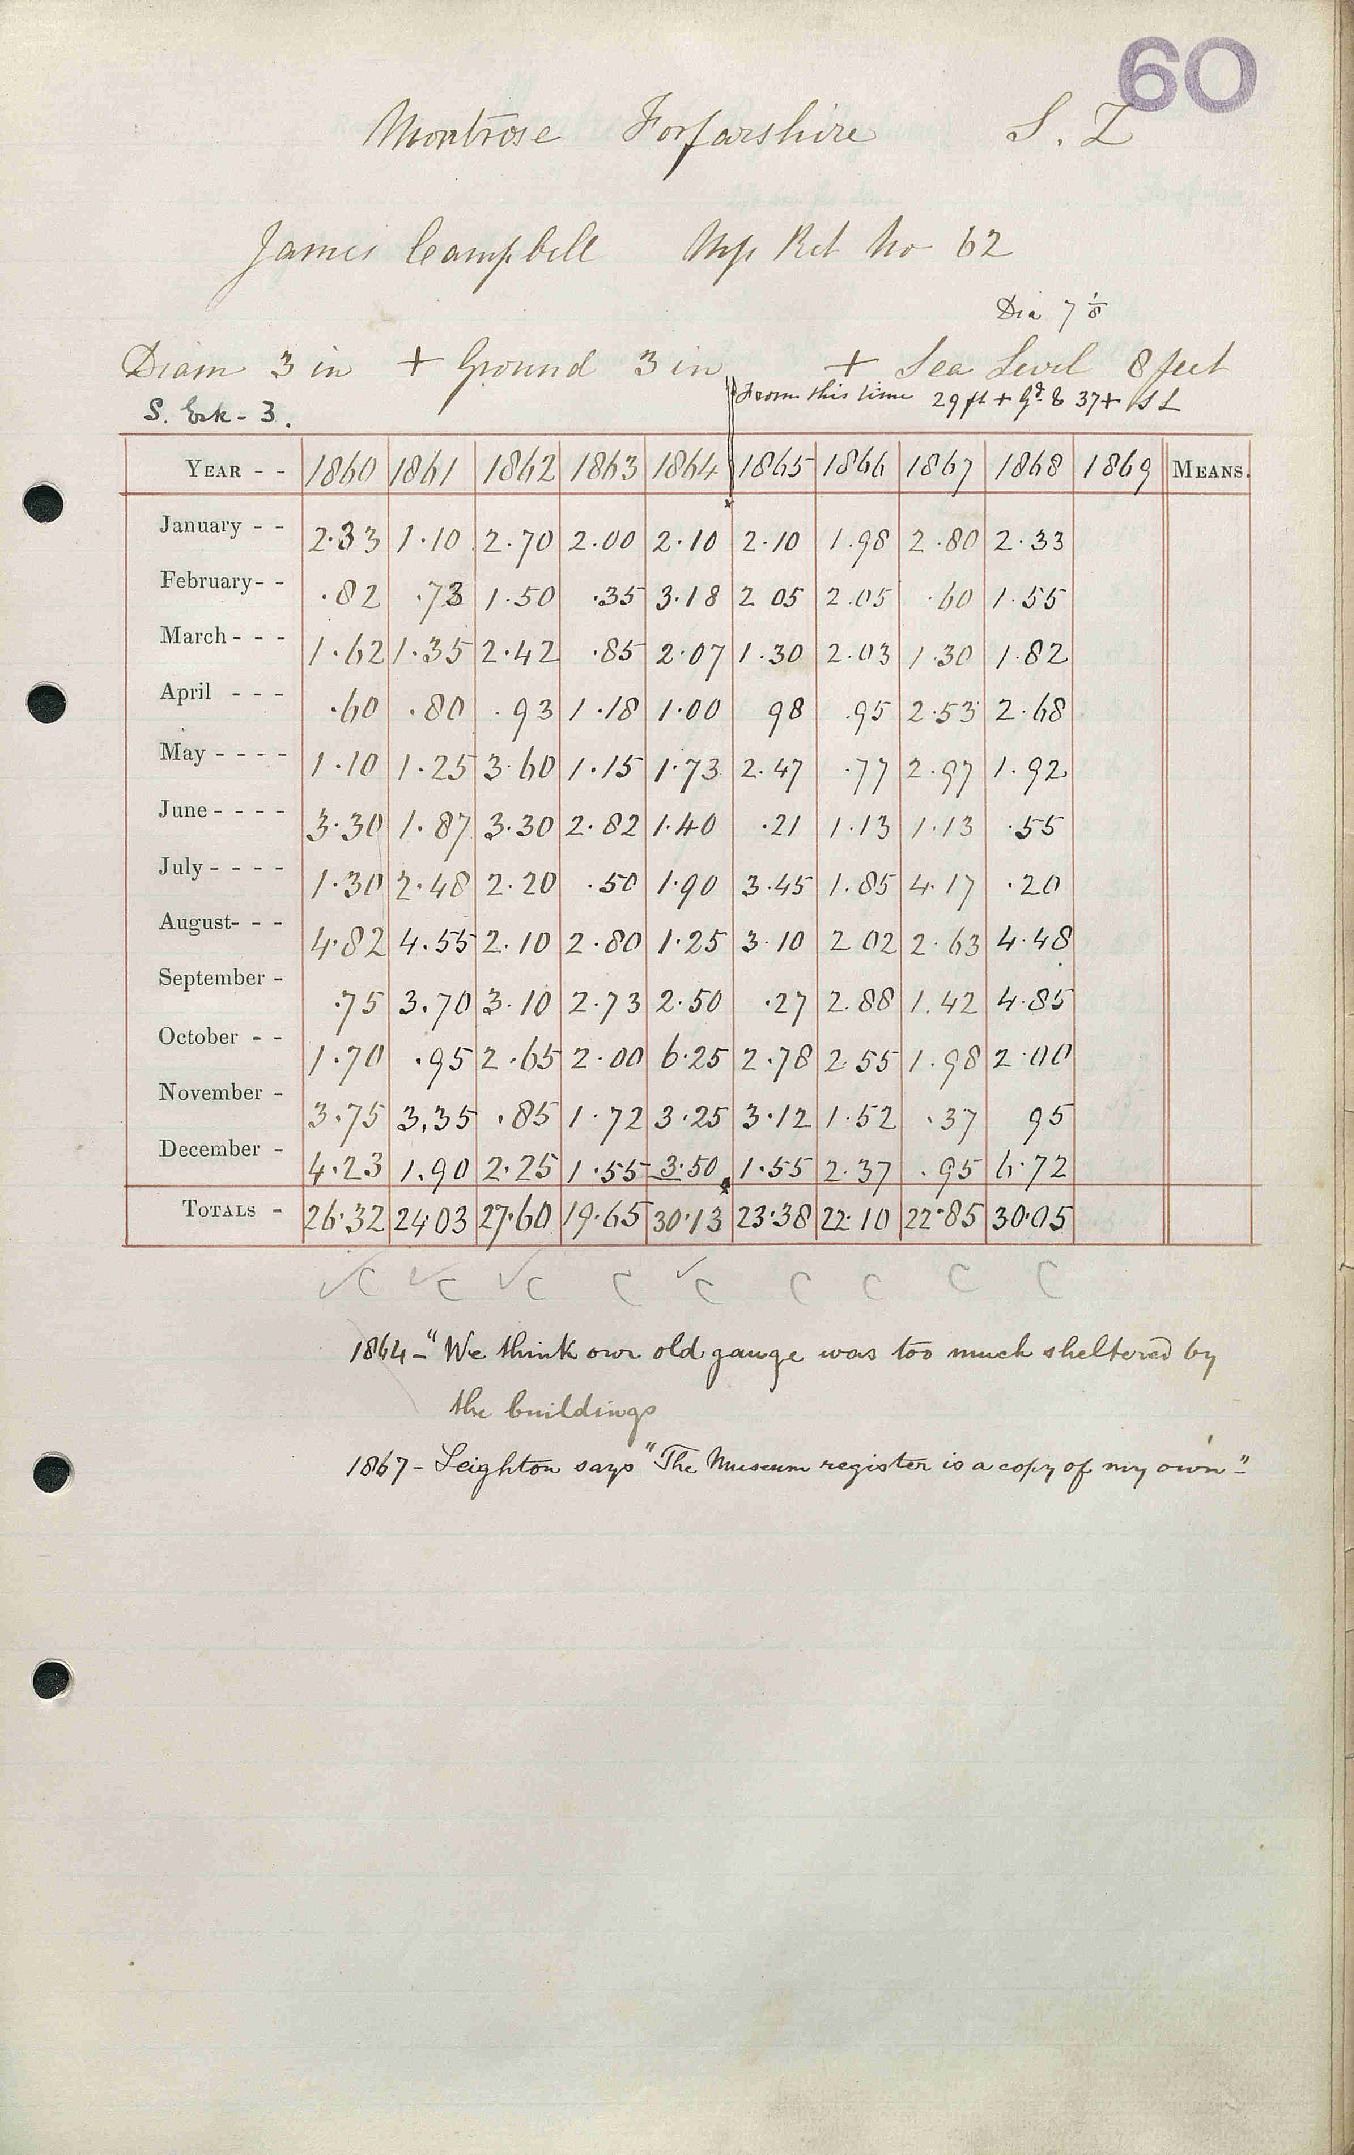 60
Montrose Forfarshire S. Z
James Campbell Map Ret No 62
Dia 7 1/8
Diam 3 in + Ground 3 in + Sea Level 8 feet
From this time 29 ft + Gd. & 37 + SL
S. Esk - 3.
YEAR - - 1860 1861 1862 1863 1864 1865 1866 1867 1868 1869 MEANS.
January - - 2.33 1.10 2.70 2.00 2.10 2.10 1.98 2.80 2.33
February - - .82 .73 1.50 .35 3.18 2 05 2.05 .60 1.55
March - - - 1.62 1.35 2.42 .85 2.07 1.30 2.03 1.30 1.82
April - - - .60 .80 .93 1.18 1.00 98 .95 2.53 2.68
May - - - - 1.10 1.25 3.60 1.15 1.73 2.47 .77 2.97 1.92
June - - - - 3.30 1.87 3.30 2.82 1.40 .21 1.13 1.13 .55
July - - - - 1.30 2.48 2.20 .50 1.90 3.45 1.85 4.17 .20
August - - - 4.82 4.55 2.10 2.80 1.25 3.10 2 02 2.63 4.48
September - .75 3.70 3.10 2.73 2.50 .27 2.88 1.42 4.85
October - - 1.70 .95 2.65 2.00 6.25 2.78 2.55 1.98 2.00
November - 3.75 3.35 .85 1.72 3.25 3.12 1.52 .37 95
December - 4.23 1.90 2.25 1.55 3.50 1.55 2.37 .95 6.72
TOTALS - 26.32 24 03 27.60 19.65 30.13 23.38 22.10 22.85 30.05
✓C ✓C ✓C C ✓C C C C C
1864 - "We think our old gauge was too much sheltered by
the buildings
1867 - Leighton says "The Museum register is a copy of my own"